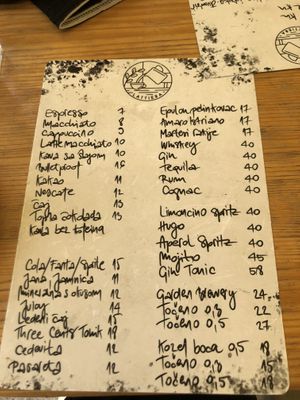 LATTIERA
Espresso 7
Macchiato 8
Cappuccino 9
Latte Macchiato 10
Kava sa šlagom 10
Bulletproof 15
Kakao 11
Nescafe 12
Čaj 13
Topla čokolada 13
Kava bez kofeina
Cola/Fanta/Sprite 15
Jana, Jamnica 11
Mineralna s okusom 12
Juicy 14
Ledeni čaj 15
Three Cents Tonik 18
Cedevita 12
Pašareta 12
Epulon pelinkovac 17
Amaro Adriano 17
Martini Bitije 17
Whiskey 40
Gin 40
Tequila 40
Rum 40
Cognac 40
Limoncino Spritz 40
Hugo 40
Aperol Spritz 40
Mojito 45
Gin Tonic 58
Garden Brewery 24
Točeno 0,3 22
Točeno 0,5 27
Kozel boca 0,5 18
Točeno 0,3 15
Točeno 0,5 18